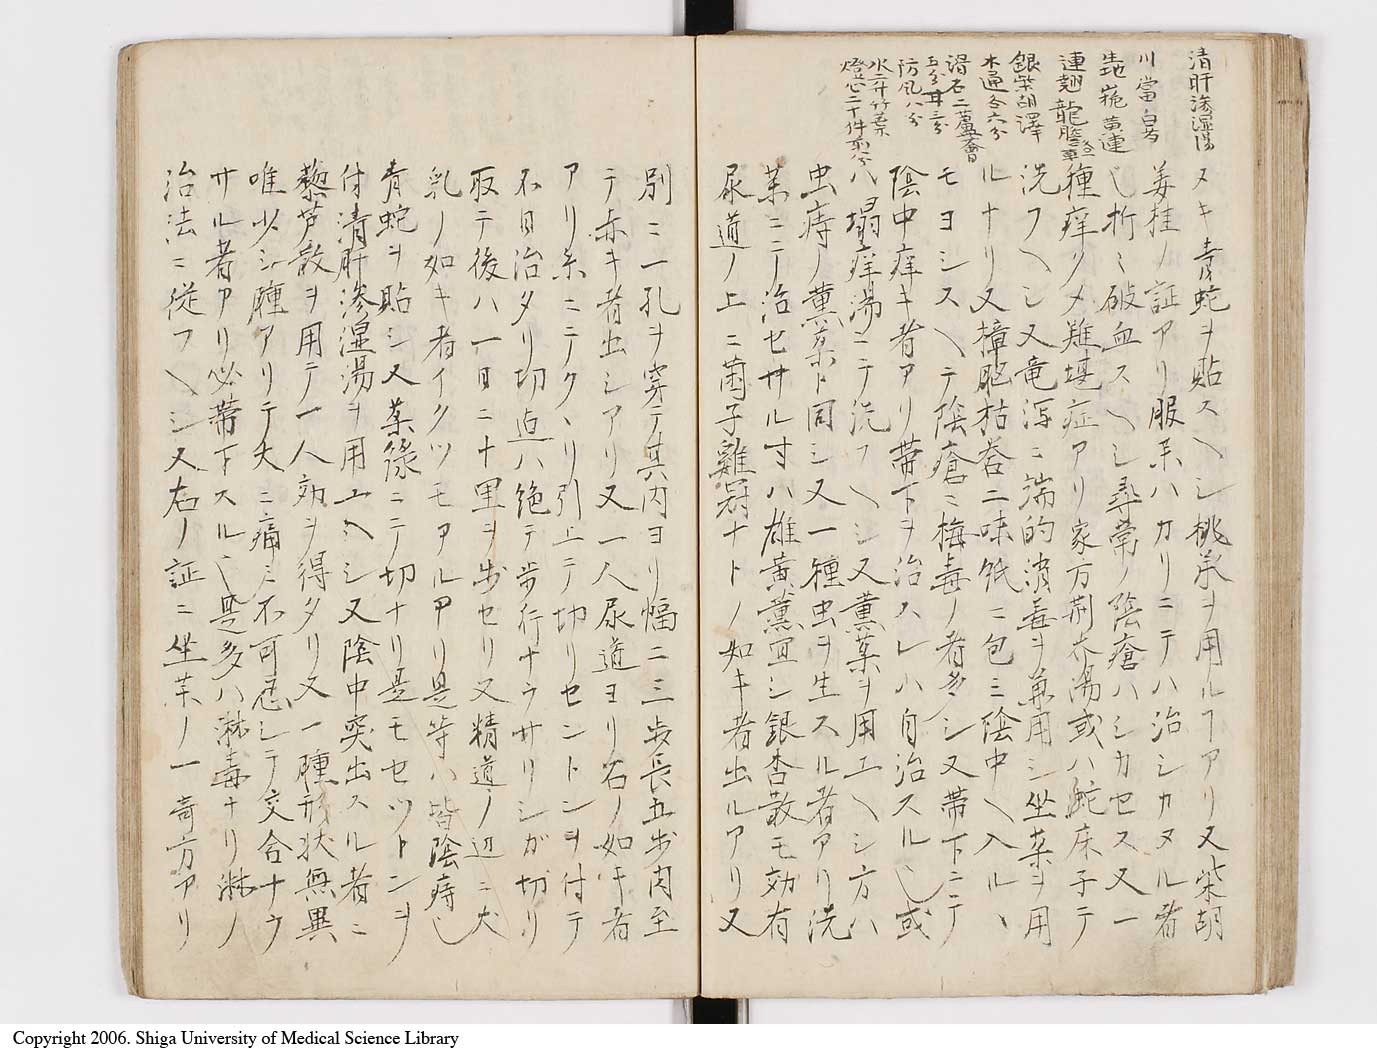 清肝滲湿湯
川 當 白芍
生地 山梔 黄連
連翹 龍膽草
銀柴胡 澤
木通各六分
滑石二 蘆薈
五分 甘三分
防風八分
水二升竹葉
燈心二十件煎
ヌキ青蛇ヲ貼スヘシ桃承ヲ用ルヿアリ又柴胡
姜桂ノ証アリ服薬ハカリニテハ治シカヌル者
也折々破血スヘシ尋常ノ陰瘡ハシカセス又一
種痒ノメ難堪症アリ家方荊芥湯或ハ蛇床子テ
洗フヘシ又竜瀉ニ端的消毒ヲ兼用シ坐薬ヲ用
ルナリ又樟脳枯礬二味帋ニ包ミ陰中ヘ入ルヽ
モヨシスヘテ陰瘡ニ梅毒ノ者多シ又帯下ニテ
陰中痒キ者アリ帯下ヲ治スレハ自治スル也或
ハ塌痒湯ニテ洗フヘシ又薫薬ヲ用エヘシ方ハ
虫痔ノ薫薬ト同シ又一種虫ヲ生スル者アリ洗
薬ニテ治セサル寸ハ雄黄薫宜シ銀杏散モ効有
尿道ノ上ニ菌子雞冠ナトノ如キ者出ルアリ又
別ニ一孔ヲ穿テ其内ヨリ幅二三歩長五歩肉至
テ赤キ者出シアリ又一人尿道ヨリ石ノ如キ者
アリ糸ニテクヽリ引上テ切リセントンヲ付テ
不日治タリ切迠ハ絶テ歩行ナラサリシガ切リ
取テ後ハ一日ニ十里ヲ歩セリ又精道ノ辺ニ犬
乳ノ如キ者イクツモアルアリ是等ハ皆陰痔也
青蛇ヲ貼シ又薬線ニテ切ナリ是モセツトンヲ
付清肝滲湿湯ヲ用エヘシ又陰中突出スル者ニ
藜芦散ヲ用テ一人効ヲ得タリ又一種形状無異
唯少シ腫アリテ大ニ痛ミ不可忍シテ交合ナラ
サル者アリ必帯下スル也是多ハ淋毒ナリ淋ノ
治法ニ従フヘシ又右ノ証ニ坐薬ノ一奇方アリ
Copyright 2006. Shiga University of Medical Science Library